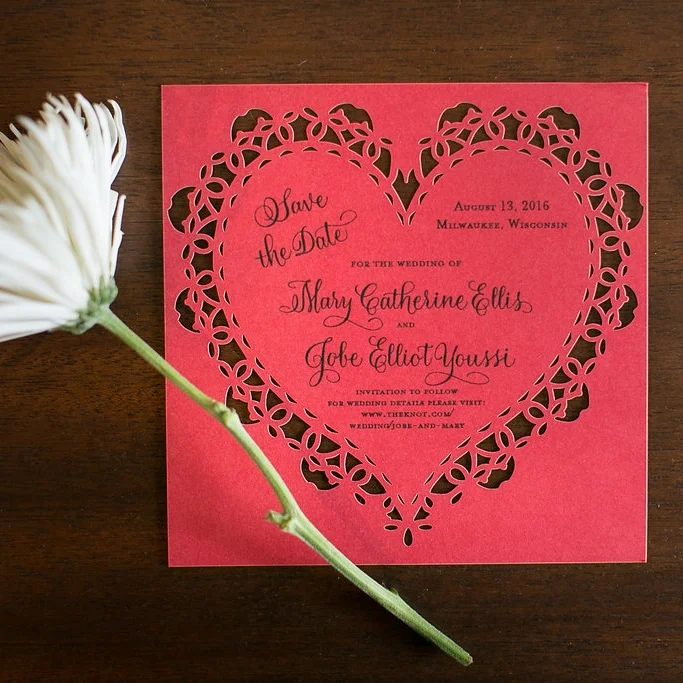 Save
the Date
August 13, 2016
Milwaukee, Wisconsin
for the wedding of
Mary Catherine Ellis
and
Jobe Elliot Youssi
invitation to follow
for wedding details please visit:
www.theknot.com/
wedding/jobe-and-mary